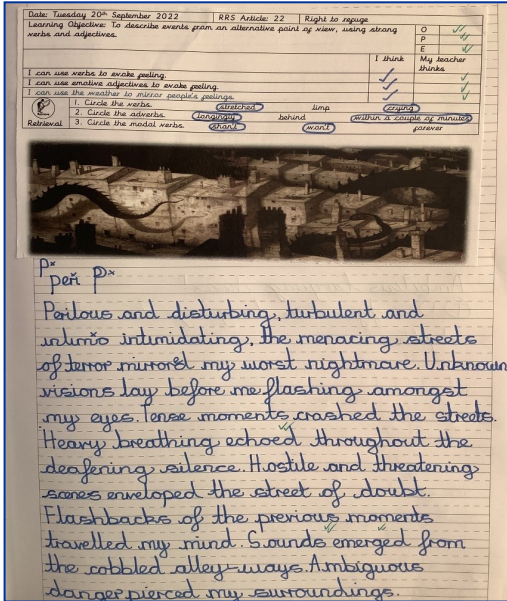 Date: Tuesday 20th September 2022 RRS Article: 22 Right to refuge
Learning Objective: To describe events from an alternative point of view, using strong
verbs and adjectives.
O
P
E
I think My teacher
thinks
I can use verbs to evoke feeling.
I can use emotive adjectives to evoke feeling.
I can use the weather to mirror people's feelings.
Retrieval
1. Circle the verbs. stretched limp crying
2. Circle the adverbs. longingly behind within a couple of minutes
3. Circle the modal verbs. shan't won't forever
Perilous and disturbing, turbulent and
intimidating, the menacing streets
of terror mirrored my worst nightmare. Unknown
visions lay before me flashing amongst
my eyes. Tense moments crashed the streets.
Heavy breathing echoed throughout the
deafening silence. Hostile and threatening
scenes enveloped the street of doubt.
Flashbacks of the previous moments
travelled my mind. Sounds emerged from
the cobbled alley-ways. Ambiguous
danger pierced my surroundings.